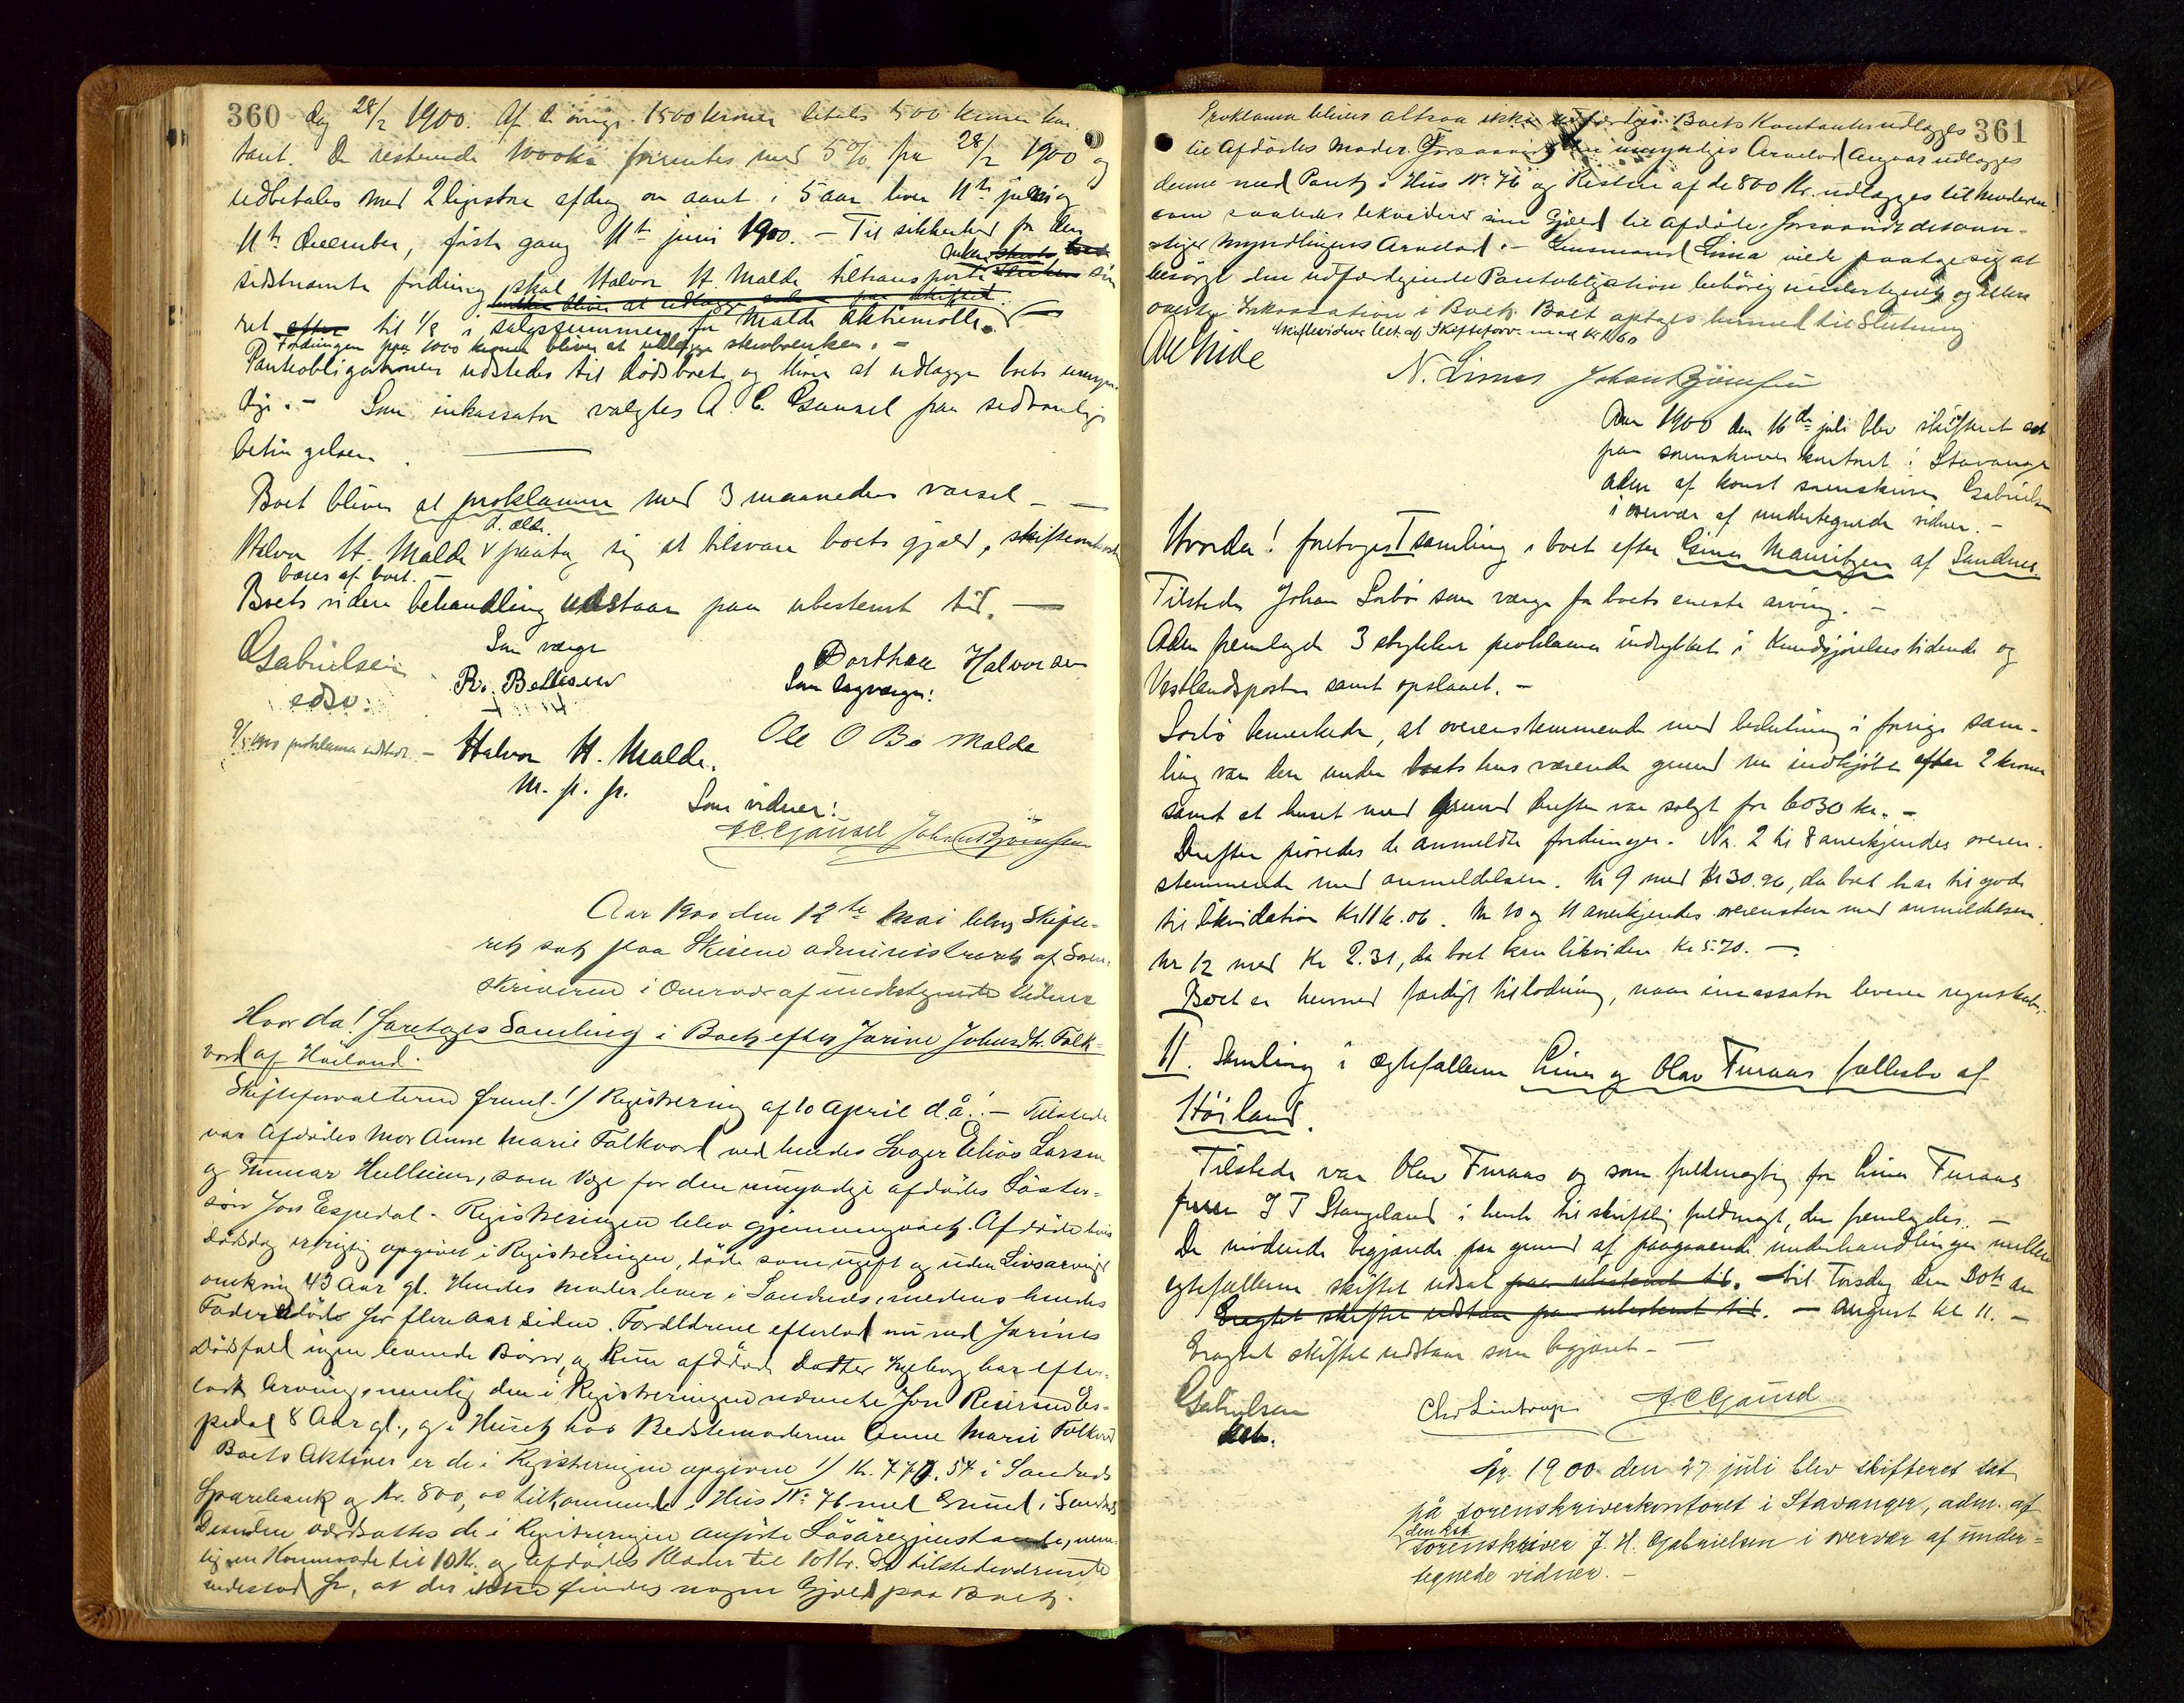 360 dag 28/2 1900. Af de övrige 1500 kroner betales 500 kroner kon-
tant. De resterende 1000 kr forrentes med 5% fra 28/2 1900 og
udbetales med 2 ligestore afdrag om aaret i 5 aar hver 11te juni og
11te december, förste gang 11te juni 1900. – Til sikkerhed for den
sidstnævnte fordring skal Halvor H. Malde tiltransportere sin
ret efter til 1/8 i salgssummen for Malde Aktiemölle.
Fordringen paa 1000 kroner bliver at udlægge
Panteobligationen udstedes til dödsboet og bliver at udlægge boets umyn-
dige. – Som inkassator valgtes A. C. Gausel paa sedvanlige
betingelser.
Boet bliver at proklamere med 3 maaneders varsel –
Halvor H. Malde d. æld. paatog sig at tilsvare boets gjæld, skifteomkostn
bæres af boet. –
Boets videre behandling udstaar paa ubestemt tid. –
Gabrielsen
edsv.
Som værge
R. Bellesen
Dorthea Halvorsen
Som lagværge:
Ole O Bö Malde
9/5 1900 proklama udstedt. –
Halvor H. Malde.
m. p. p.
Som vidner:
A.C. Gausel Johan Bjömsen
Aar 1900 den 12te Mai blev Skifte-
ret sat paa Skeiene administreret af Soren-
skriveren i Overvær af undertegnede Vidner
Hvorda! foretoges Samling i Boet efter Jorine Johnsdtr. Folk-
vord af Höiland.
Skifteforvalteren freml. 1) Registrering af 10 April d.å. – Tilstede
var Afdödes Mor Anne Marie Folkvord ved hendes Svoger Elias Larsen
og Gunnar Hulleim, som Værge for den umyndige afdödes Söster-
sön Jon Espedal. Registreringen blev gjennemgaaet. Afdöde hvis
Dödsdag er rigtig opgivet i Registreringen, döde som ugift og uden Livsarvinger
omkring 43 Aar gl. Hendes Moder lever i Sandnes, medens hendes
Fader döde for flere Aar siden. Forældrene efterlod nu ved Jorines
Dödsfald ingen levende Börn, og kun afdöde Datter Ingeborg har efter-
ladt Arving, nemlig den i Registreringen nævnte Jon Reiersen Es-
pedal 8 Aar gl., og i Huset hos Bedstemoderen Anne Marie Folkvord
Boets Aktiver er de i Registreringen opgivne 1) Kr. 777,54 i Sandnes
Sparebank og Kr. 800,00 tilkommende i Hus No 76 med Grund i Sandnes
Desuden værdsattes de i Registreringen anförte Lösöregjenstande, nem-
lig en Kommode til 10 Kr. og Afdödes Klæder til 10 Kr. De tilstedeværende
indestod for, at der ikke findes nogen Gjæld paa Boet.
361
Proklama bliver altsaa ikke at udfærdige. Boets Kontanter udlægges
til Afdödes Moder. Forsaavidt den umyndiges Arvelod Angaar udlægges
denne med Pant i Hus No 76 og Resten af de 800 Kr. udlægges til Moderen
som saaledes likviderer sin Gjæld til Afdöde, forsaavidt det over-
stiger Myndlingens Arvelod. – Lensmand Lima vilde paatage sig at
besörge den udfærdigende Pantobligation behörig undertegnet og ellers
overtage Inkassation i Boet. Boet optages hermed til Slutning
Skiftevidner bet. af Skifteforv. med Kr 1,60
N. Lima Johan Bjömsen
Aar 1900 den 16de juli blev skifteret sat
paa sorenskriverkontoret i Stavanger
adm. af konst sorenskriver Gabrielsen
i overvær af undertegnede vidner. –
Hvorda! foretoges I samling i boet efter Gina Mauritzen af Sandnes
Tilstede Johan Sorbö som værge for boets eneste arving. –
Adm fremlagde 3 stykker proklama indrykket i Kundgjörelsestidende og
Vestlandsposten samt opslaaet. –
Sorbö bemerkede, at overensstemmende med beslutning i forrige sam-
ling var den under boets hus værende grund nu indkjöbt efter 2 kroner
samt at huset med grund derefter var solgt for 6030 kr. –
Derefter prövedes de anmeldte fordringer. Nr. 2 til 8 anerkjendes overen-
stemmende med anmeldelsen. Nr 9 med Kr 30.96, da boet har til gode
til likvidation Kr 116.06. Nr 10 og 11 anerkjendes overenstem med anmeldelsen
Nr 12 med Kr 2.31, da boet kan likvidere Kr 5.70. –
Boet er hermed færdigt til lodning, naar incassator leverer regnskab.
II. Samling i ægtefællerne Lina og Olav Furaas fællesbo af
Höiland.
Tilstede var Olav Furaas og som fuldmægtig for Lina Furaas
J T Stangeland i henh til skriftlig fuldmagt, der fremlagdes. –
De mödende begjærede paa grund af paagaaende underhandlinger mellem
egtefællerne skiftet udsat paa ubestemt tid. – til Torsdag den 30te
Eragtet skiftet udstaar paa ubestemt tid. – August kl 11. –
Eragtet skiftet udstaar som begjæret. –
Gabrielsen
kst.
Chr Lintrup A.C. Gausel
År 1900 den 27 juli blev skifteret sat
på sorenskriverkontoret i Stavanger, adm. af
den kst
sorenskriver J. H. Gabrielsen i overvær af under-
tegnede vidner. –